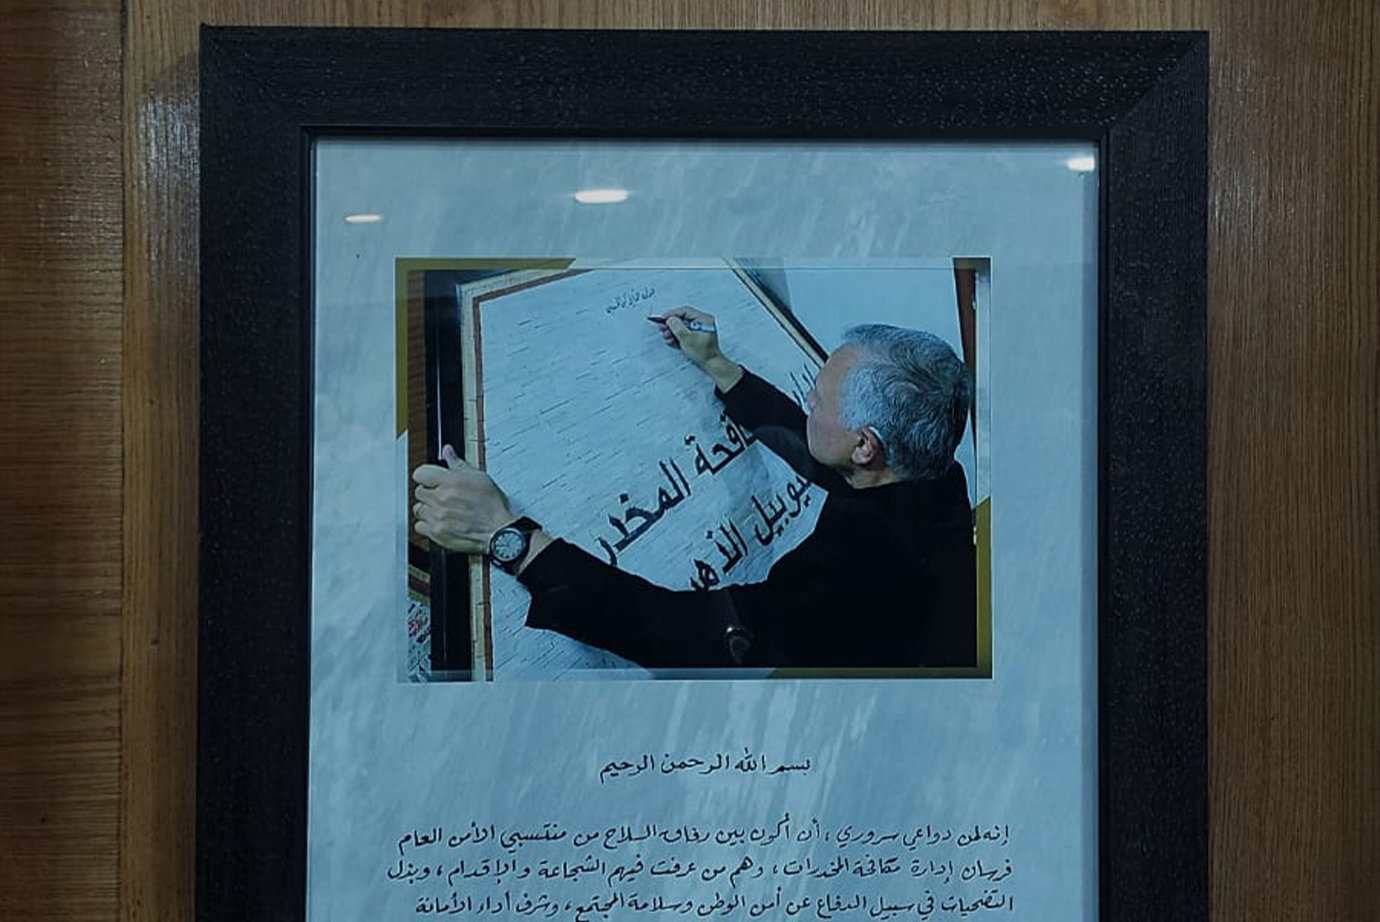 مكافحة المخدر
اليوبيل الذهبي
بسم الله الرحمن الرحيم
إنه لمن دواعي سروري ، أن أكون بين رفاق السلاح من منتسبي الأمن العام
فرسان إدارة مكافحة المخدرات ، وهم من عرفت فيهم الشجاعة والإقدام ، وبذل
التضحيات في سبيل الدفاع عن أمن الوطن وسلامة المجتمع ، وشرف أداء الأمانة